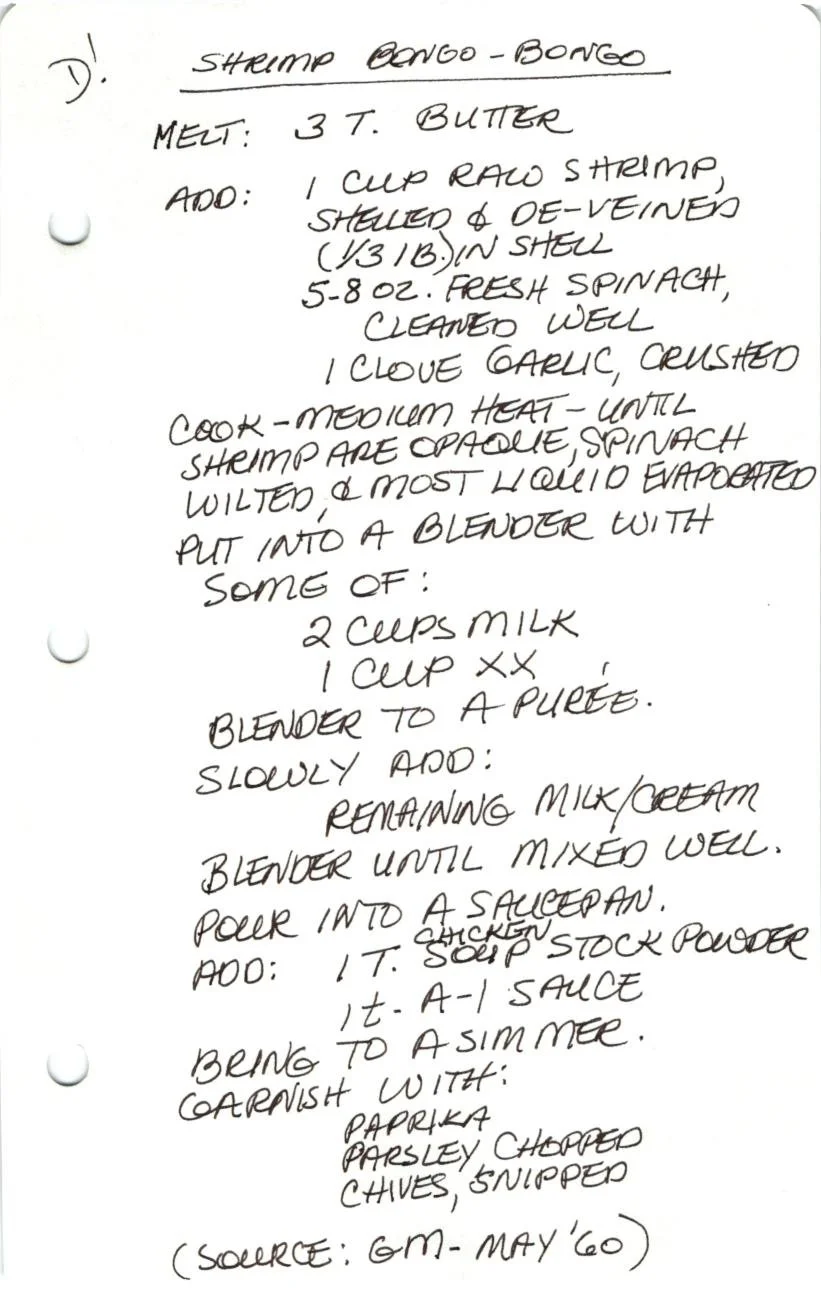 D!
SHRIMP BONGO-BONGO
MELT: 3 T. BUTTER
ADD: 1 CUP RAW SHRIMP,
SHELLED & DE-VEINED
(1/3 lB.) IN SHELL
5-8 OZ. FRESH SPINACH,
CLEANED WELL
1 CLOVE GARLIC, CRUSHED
COOK-MEDIUM HEAT-UNTIL
SHRIMP ARE OPAQUE, SPINACH
WILTED, & MOST LIQUID EVAPORATED
PUT INTO A BLENDER WITH
SOME OF:
2 CUPS MILK
1 CUP XX
BLENDER TO A PURÉE.
SLOWLY ADD:
REMAINING MILK/CREAM
BLENDER UNTIL MIXED WELL.
POUR INTO A SAUCEPAN.
ADD: 1 T. CHICKEN SOUP STOCK POWDER
1 t. A-1 SAUCE
BRING TO A SIMMER.
GARNISH WITH:
PAPRIKA
PARSLEY, CHOPPED
CHIVES, SNIPPED
(SOURCE: GM- MAY '60)